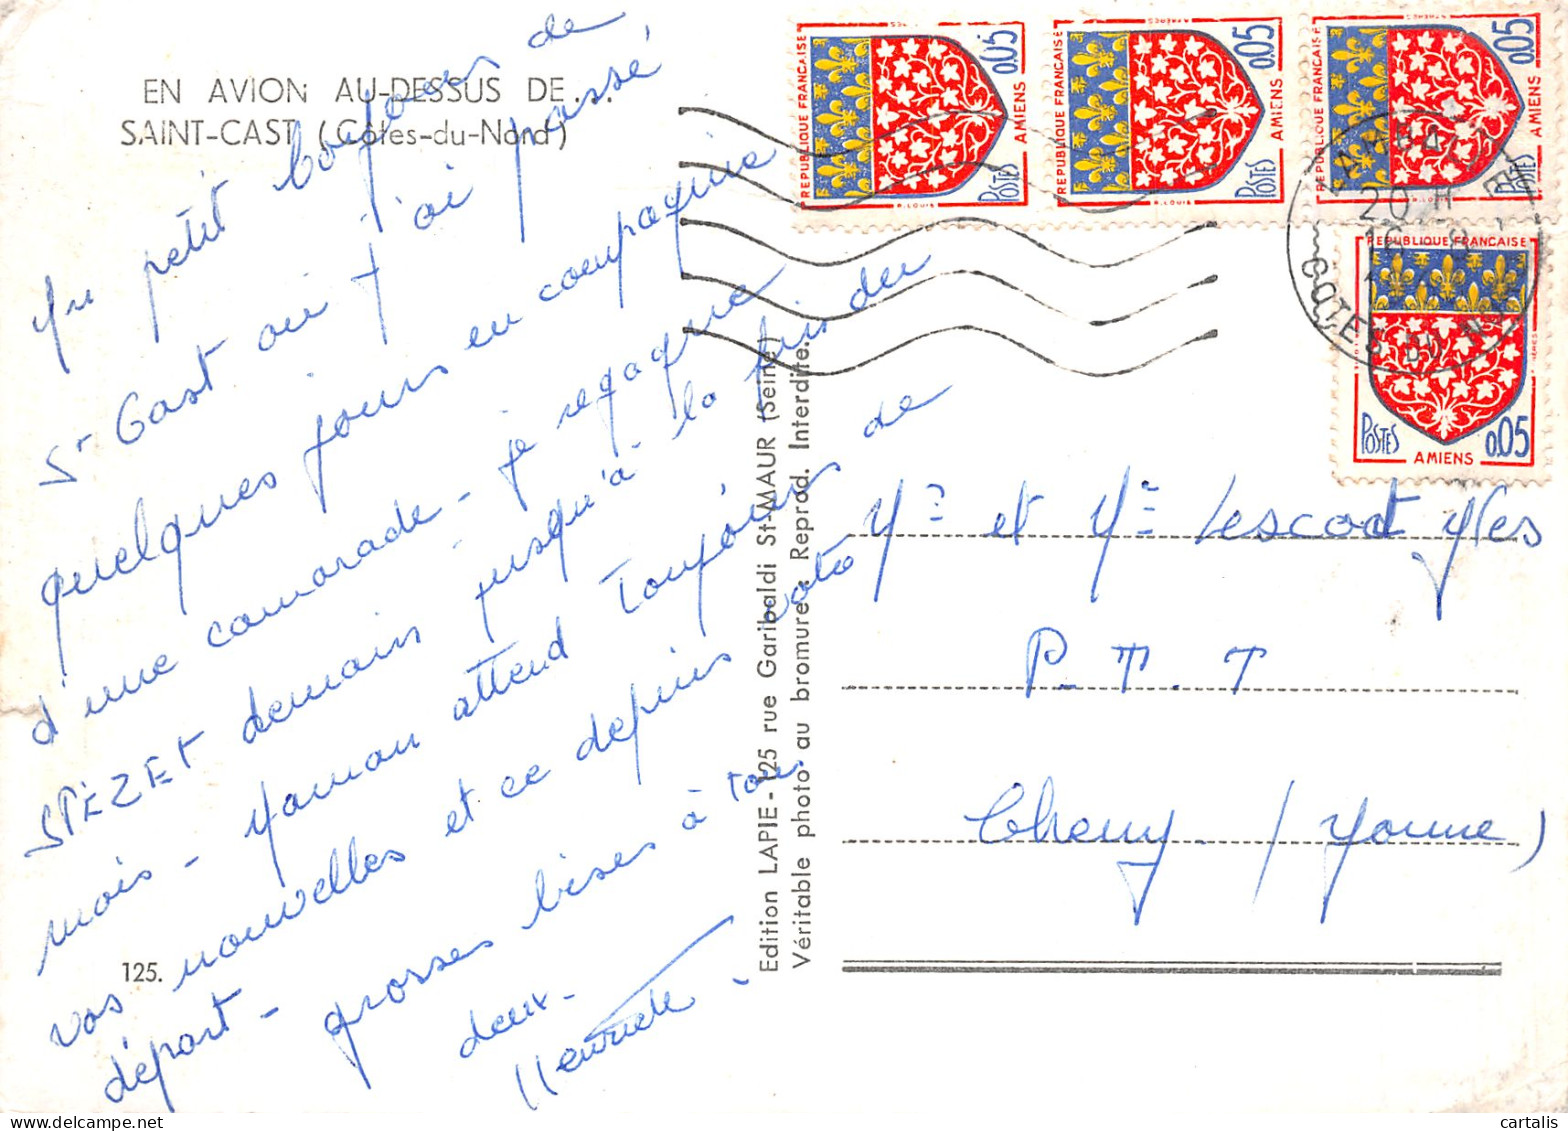 EN AVION AU-DESSUS DE . . .
SAINT-CAST (Côtes-du-Nord)
Un petit bonjour de
St Cast où j'ai passé
quelques jours en compagnie
d'une camarade - je regagne
demain jusqu'à la fin du
mois - Maman attend toujours de
vos nouvelles et ce depuis votre
départ - grosses bises à tous
deux -
Henriette
125.
Edition LAPIE - 125 rue Garibaldi St-MAUR (Seine)
Véritable photo au bromure - Reprod. Interdite.
REPUBLIQUE FRANÇAISE
0,05
AMIENS
POSTES
REPUBLIQUE FRANÇAISE
0,05
AMIENS
POSTES
REPUBLIQUE FRANÇAISE
0,05
AMIENS
POSTES
REPUBLIQUE FRANÇAISE
POSTES
0,05
AMIENS
20 H
16
COTES DU NORD
Mr et Me Lescoat Yves
P.T.T
Cheny (Yonne)
cartalis